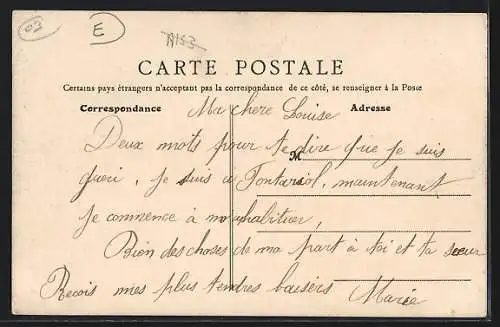 03
E
A153
CARTE POSTALE
Certains pays étrangers n'acceptant pas la correspondance de ce côté, se renseigner à la Poste
Correspondance
Adresse
Ma chere Louise
Deux mots pour te dire que je suis
M
gueri, je suis a Fontariol, maintenant
je commence à m'y habituer,
Bien des choses de ma part à toi et ta sœur
Recois mes plus tendres baisers Marie